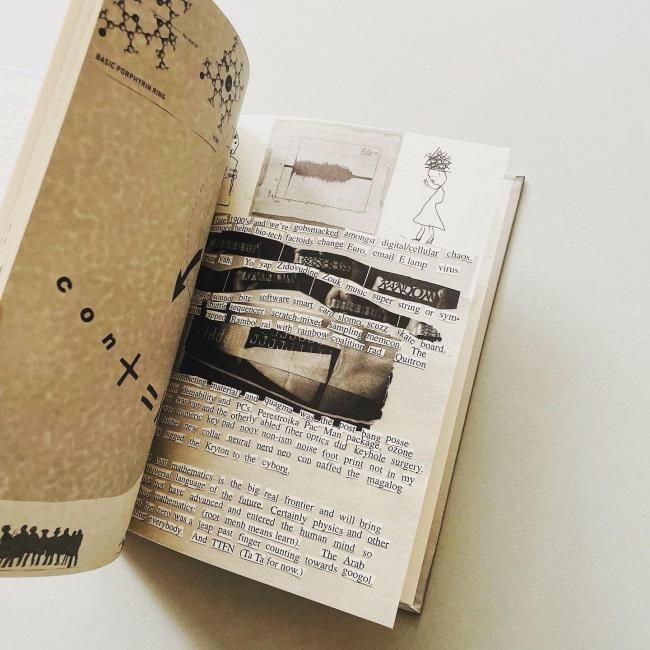 BASIC PORPHYRIN RING
cont=
late 1900's and we're gobsmacked amongst digital/cellular chaos.
helps bio-tech factoids change Euro, email E lamp virus
yah. Yo yap Zidovudine Zouk music super string or sym-
RANDOM
sound bite software smart card slomo scuzz skate board. The
sequencer scratch-mixed sampling memcon. Quitron
rapped Rambo rai with rainbow coalition rad.
material and quagma was the post bang posse
deniability and PCs. Perestroika Pac Man package, ozone
was out and the otherly abled fiber optics did keyhole surgery.
numeric key nad noov non-ism noise foot print not in my
new collar neural nerd neo con naffed the magalog
the Kryton to the cyborg.
mathematics is the big real frontier and will bring
language of the future. Certainly physics and other
have advanced and entered the human mind so
mathematics: (root menh means learn). The Arab
zero was a leap past finger counting towards googol.
everybody. And TTFN (Ta Ta for now.)